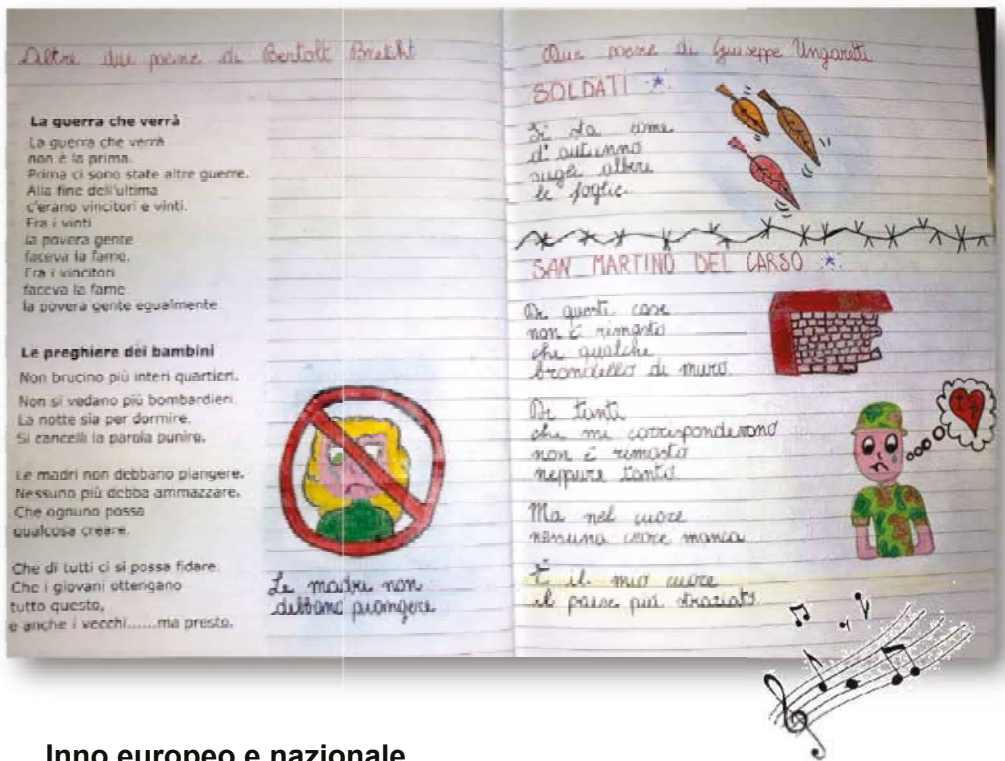 Altre due poesie di Bertolt Brecht
La guerra che verrà
La guerra che verrà
non è la prima.
Prima ci sono state altre guerre.
Alla fine dell'ultima
c'erano vincitori e vinti.
Fra i vinti
la povera gente
faceva la fame.
Fra i vincitori
faceva la fame
la povera gente egualmente.
Le preghiere dei bambini
Non brucino più interi quartieri.
Non si vedano più bombardieri.
La notte sia per dormire.
Si cancelli la parola punire.
Le madri non debbano piangere.
Nessuno più debba ammazzare.
Che ognuno possa
qualcosa creare.
Che di tutti ci si possa fidare.
Che i giovani ottengano
tutto questo,
e anche i vecchi......ma presto.
Le madri non
debbano piangere
Due poesie di Giuseppe Ungaretti
SOLDATI
Si sta come
d'autunno
sugli alberi
le foglie.
SAN MARTINO DEL CARSO
Di queste case
non è rimasto
che qualche
brandello di muro.
Di tanti
che mi corrispondevano
non è rimasto
neppure tanto.
Ma nel cuore
nessuna croce manca
È il mio cuore
il paese più straziato.
Inno europeo e nazionale